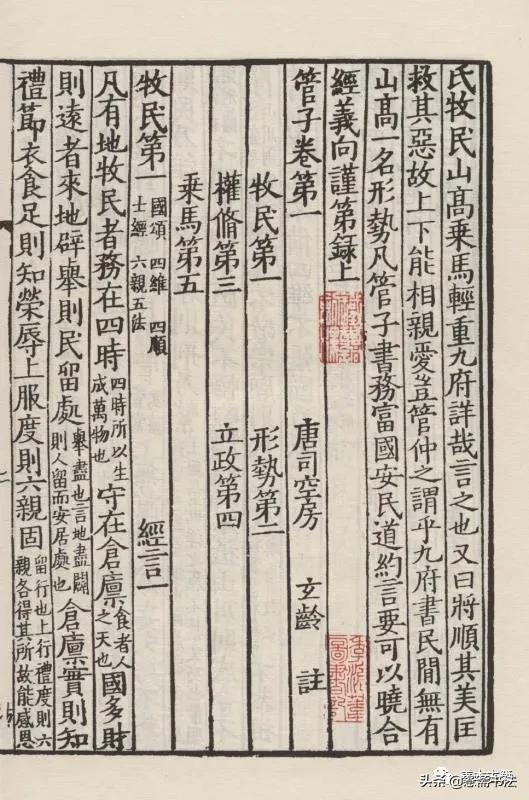 氏牧民山髙乗馬輕重九府詳哉言之也又曰將順其美匡
救其惡故上下能相親愛豈管仲之謂乎九府書民間無有
山髙一名形勢凡管子書務富國安民道約言要可以曉合
經義向謹第録上
管子卷第一 唐司空房 玄齡 註
牧民第一 形勢第二
權脩第三 立政第四
乗馬第五
牧民第一 國頌 四維 四順 士經 六親五法 經言一
凡有地牧民者務在四時 四時所以生成萬物也 守在倉廩 食者人之天也 國多財
則遠者來地辟舉則民留處 舉盡也言地盡闢則人留而安居處也 倉廩實則知
禮節衣食足則知榮辱上服度則六親固 服行也上行禮度則六親各得其所故能感恩
头条@慧斋书法